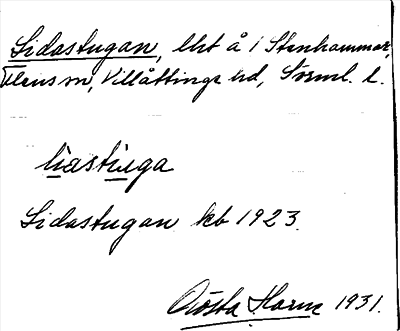 Lidastugan, lht å 1 Stenhammar,
Flens sn, Villåttinge hd, Sörml. l.
liastuga
Lidastugan kb 1923.
Gösta Harne 1931.